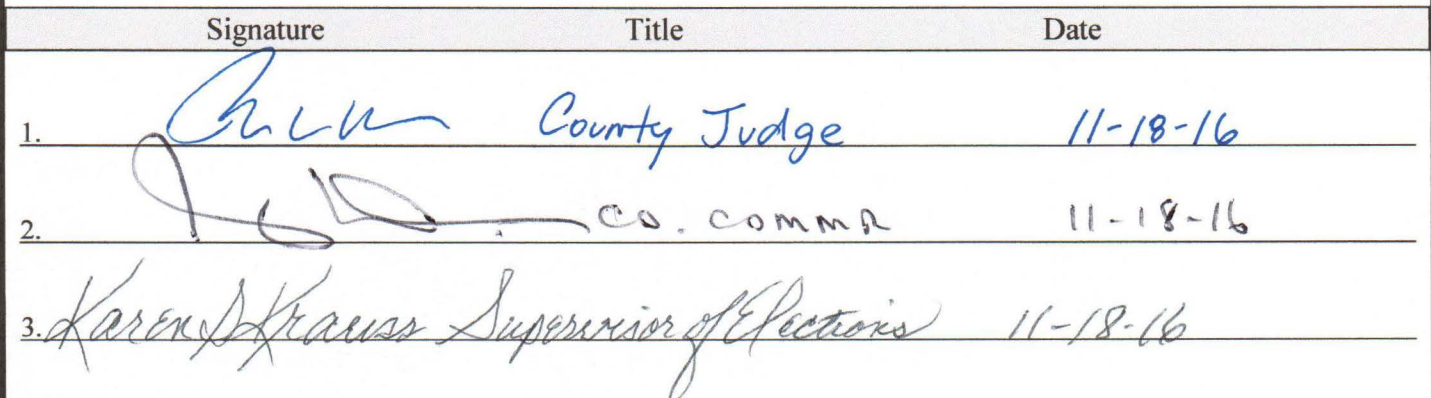 Signature Title Date
1. County Judge 11-18-16
2. CO. COMMR 11-18-16
3. Karen S Krauss Supervisor of Elections 11-18-16